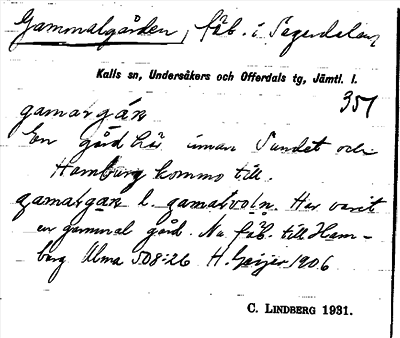 Gammalgården, fäb. i Sagerdalen,
Kalls sn, Undersåkers och Offerdals tg, Jämtl. l.
351
gamaɾgáɴ
En gård här innan Sundet och
Hamburg kommo till.
gamaɾgaɴ l. gamaɾvoln. Har varit
en gammal gård. Nu fäb. till Ham-
burg Ulma 508:26 H. Geijer 1906
C. LINDBERG 1931.